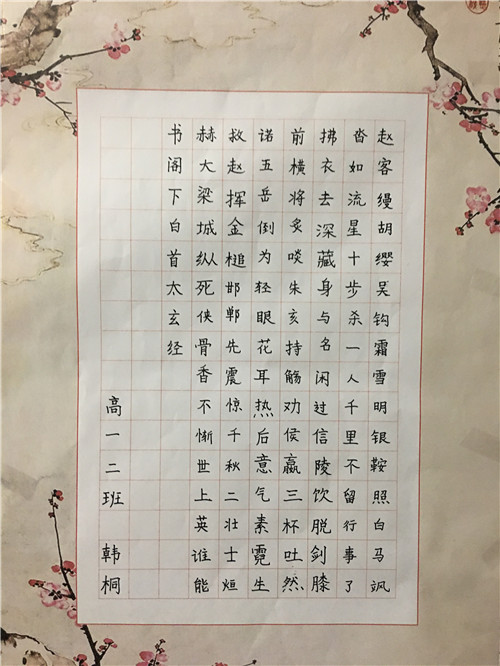 赵客缦胡缨吴钩霜雪明银鞍照白马飒
沓如流星十步杀一人千里不留行事了
拂衣去深藏身与名闲过信陵饮脱剑膝
前横将炙啖朱亥持觞劝侯嬴三杯吐然
诺五岳倒为轻眼花耳热后意气素霓生
救赵挥金槌邯郸先震惊千秋二壮士烜
赫大梁城纵死侠骨香不惭世上英谁能
书阁下白首太玄经
高一二班 韩桐